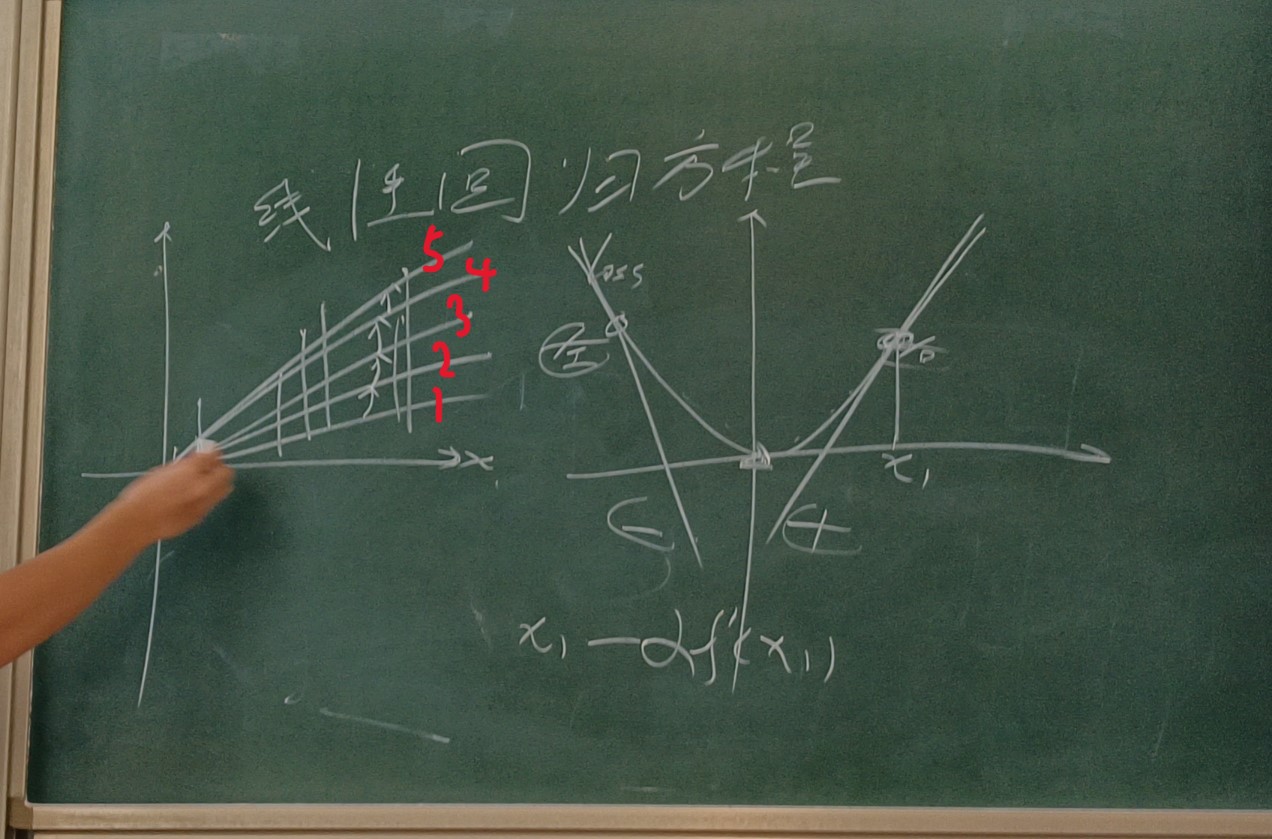 线性回归方程
5
4
3
2
1
x
Loss
左
右
x₁
-
+
x₁ - αf'(x₁)